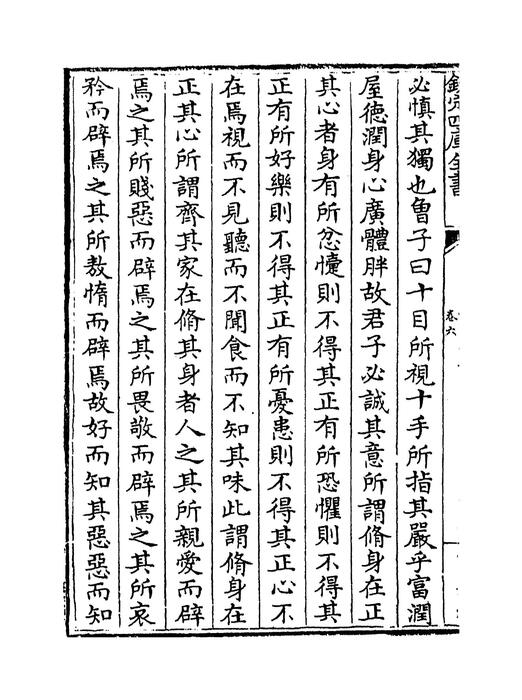 欽定四庫全書
卷六
必慎其獨也曾子曰十目所視十手所指其嚴乎富潤
屋德潤身心廣體胖故君子必誠其意所謂脩身在正
其心者身有所忿懥則不得其正有所恐懼則不得其
正有所好樂則不得其正有所憂患則不得其正心不
在焉視而不見聽而不聞食而不知其味此謂脩身在
正其心所謂齊其家在脩其身者人之其所親愛而辟
焉之其所賤惡而辟焉之其所畏敬而辟焉之其所哀
矜而辟焉之其所敖惰而辟焉故好而知其惡惡而知